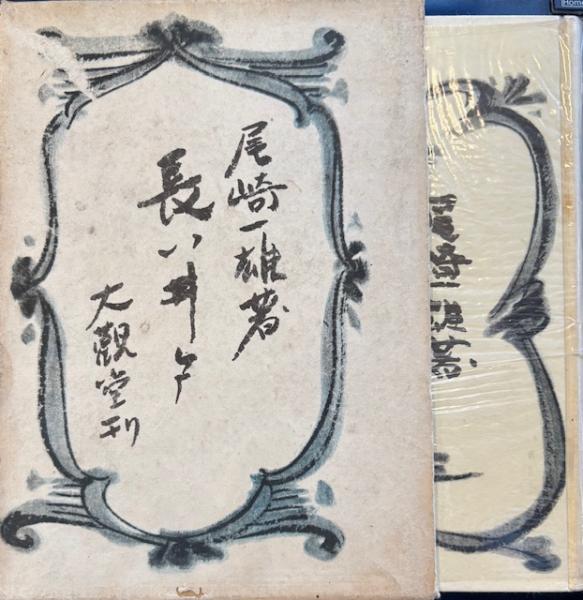 尾崎一雄著
長い井戸
大觀堂刊
尾崎一雄